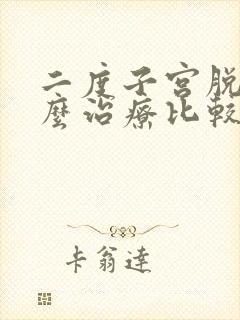 二度子宮脱
麼治療比較
卡翁達